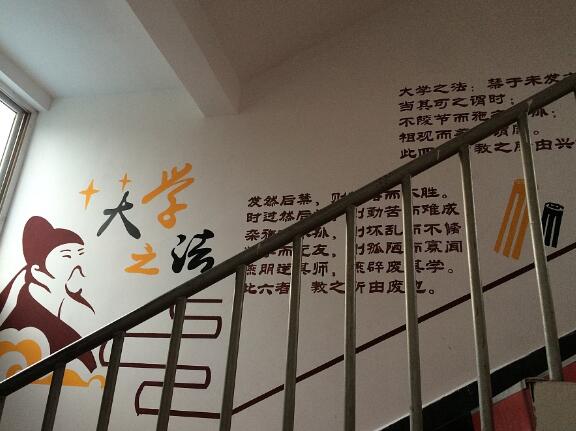 大学
之法
大学之法：禁于未发
当其可之谓时；
不陵节而施 孙；
相观而善 摩。
此四 教之所由兴
发然后禁，则 而不胜。
时过然后 则勤苦而难成
杂施 孙，则坏乱而不修
学 之友，则孤陋而寡闻
燕朋逆其师，燕辟废其学。
此六者 教之所由废也。